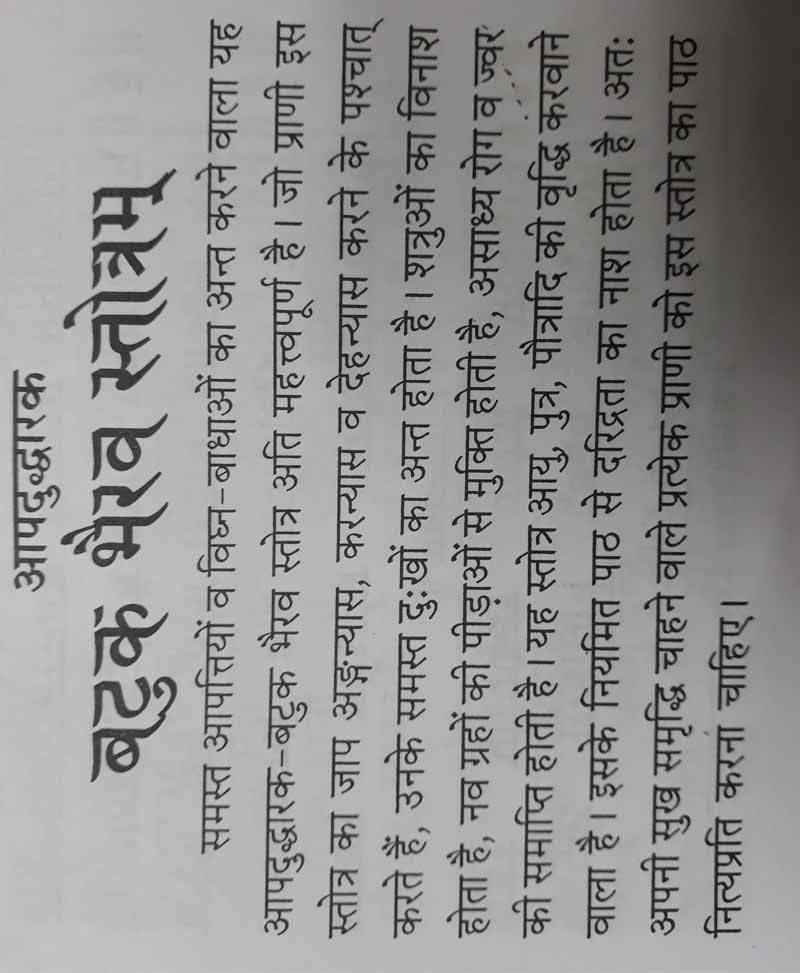 आपदुद्धारक
बटुक भैरव स्तोत्रम्
समस्त आपत्तियों व विघ्न-बाधाओं का अन्त करने वाला यह
आपदुद्धारक-बटुक भैरव स्तोत्र अति महत्त्वपूर्ण है। जो प्राणी इस
स्तोत्र का जाप अङ्गन्यास, करन्यास व देहन्यास करने के पश्चात्
करते हैं, उनके समस्त दुःखों का अन्त होता है। शत्रुओं का विनाश
होता है, नव ग्रहों की पीड़ाओं से मुक्ति होती है, असाध्य रोग व ज्वर
की समाप्ति होती है। यह स्तोत्र आयु, पुत्र, पौत्रादि की वृद्धि करवाने
वाला है। इसके नियमित पाठ से दरिद्रता का नाश होता है। अतः
अपनी सुख समृद्धि चाहने वाले प्रत्येक प्राणी को इस स्तोत्र का पाठ
नित्यप्रति करना चाहिए।